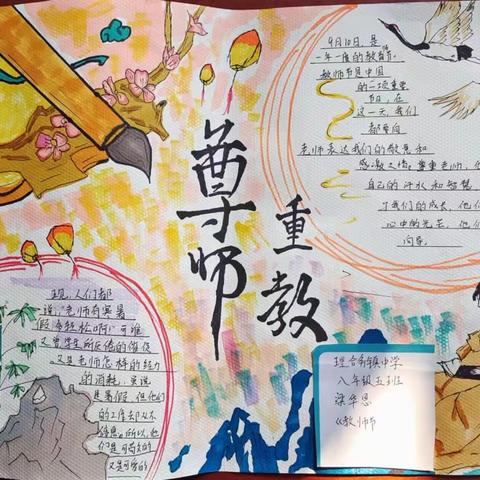 尊师
重教
9月10日,是
一年一度的教育节。
教师节是中国
的一项重要
节日,在
这一天,我们
都要向
老师表达我们的敬意和
感激之情。尊重老师,
自己的汗水和智慧,
了我们的成长,他们
心中的光芒,他们
向导。
人们都
说,老师有寒暑
假多轻松啊!可谁
又曾
又是老师怎样的精力
的消耗,
是暑假,但他们
的工作却从不
停息。所以,他
们是可敬的
又是可爱的
中学
八年级五班
梁华恩
《教师节